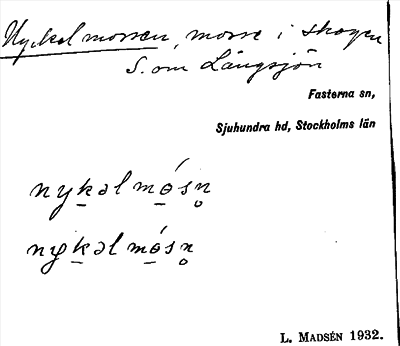 Nyckelmossen, mosse i skogen
S. om Långsjön
Fasterna sn,
Sjuhundra hd, Stockholms län
nyk̲əlmó̲sn̥
nyk̲əlmó̲sn̥
L. MADSÉN 1932.